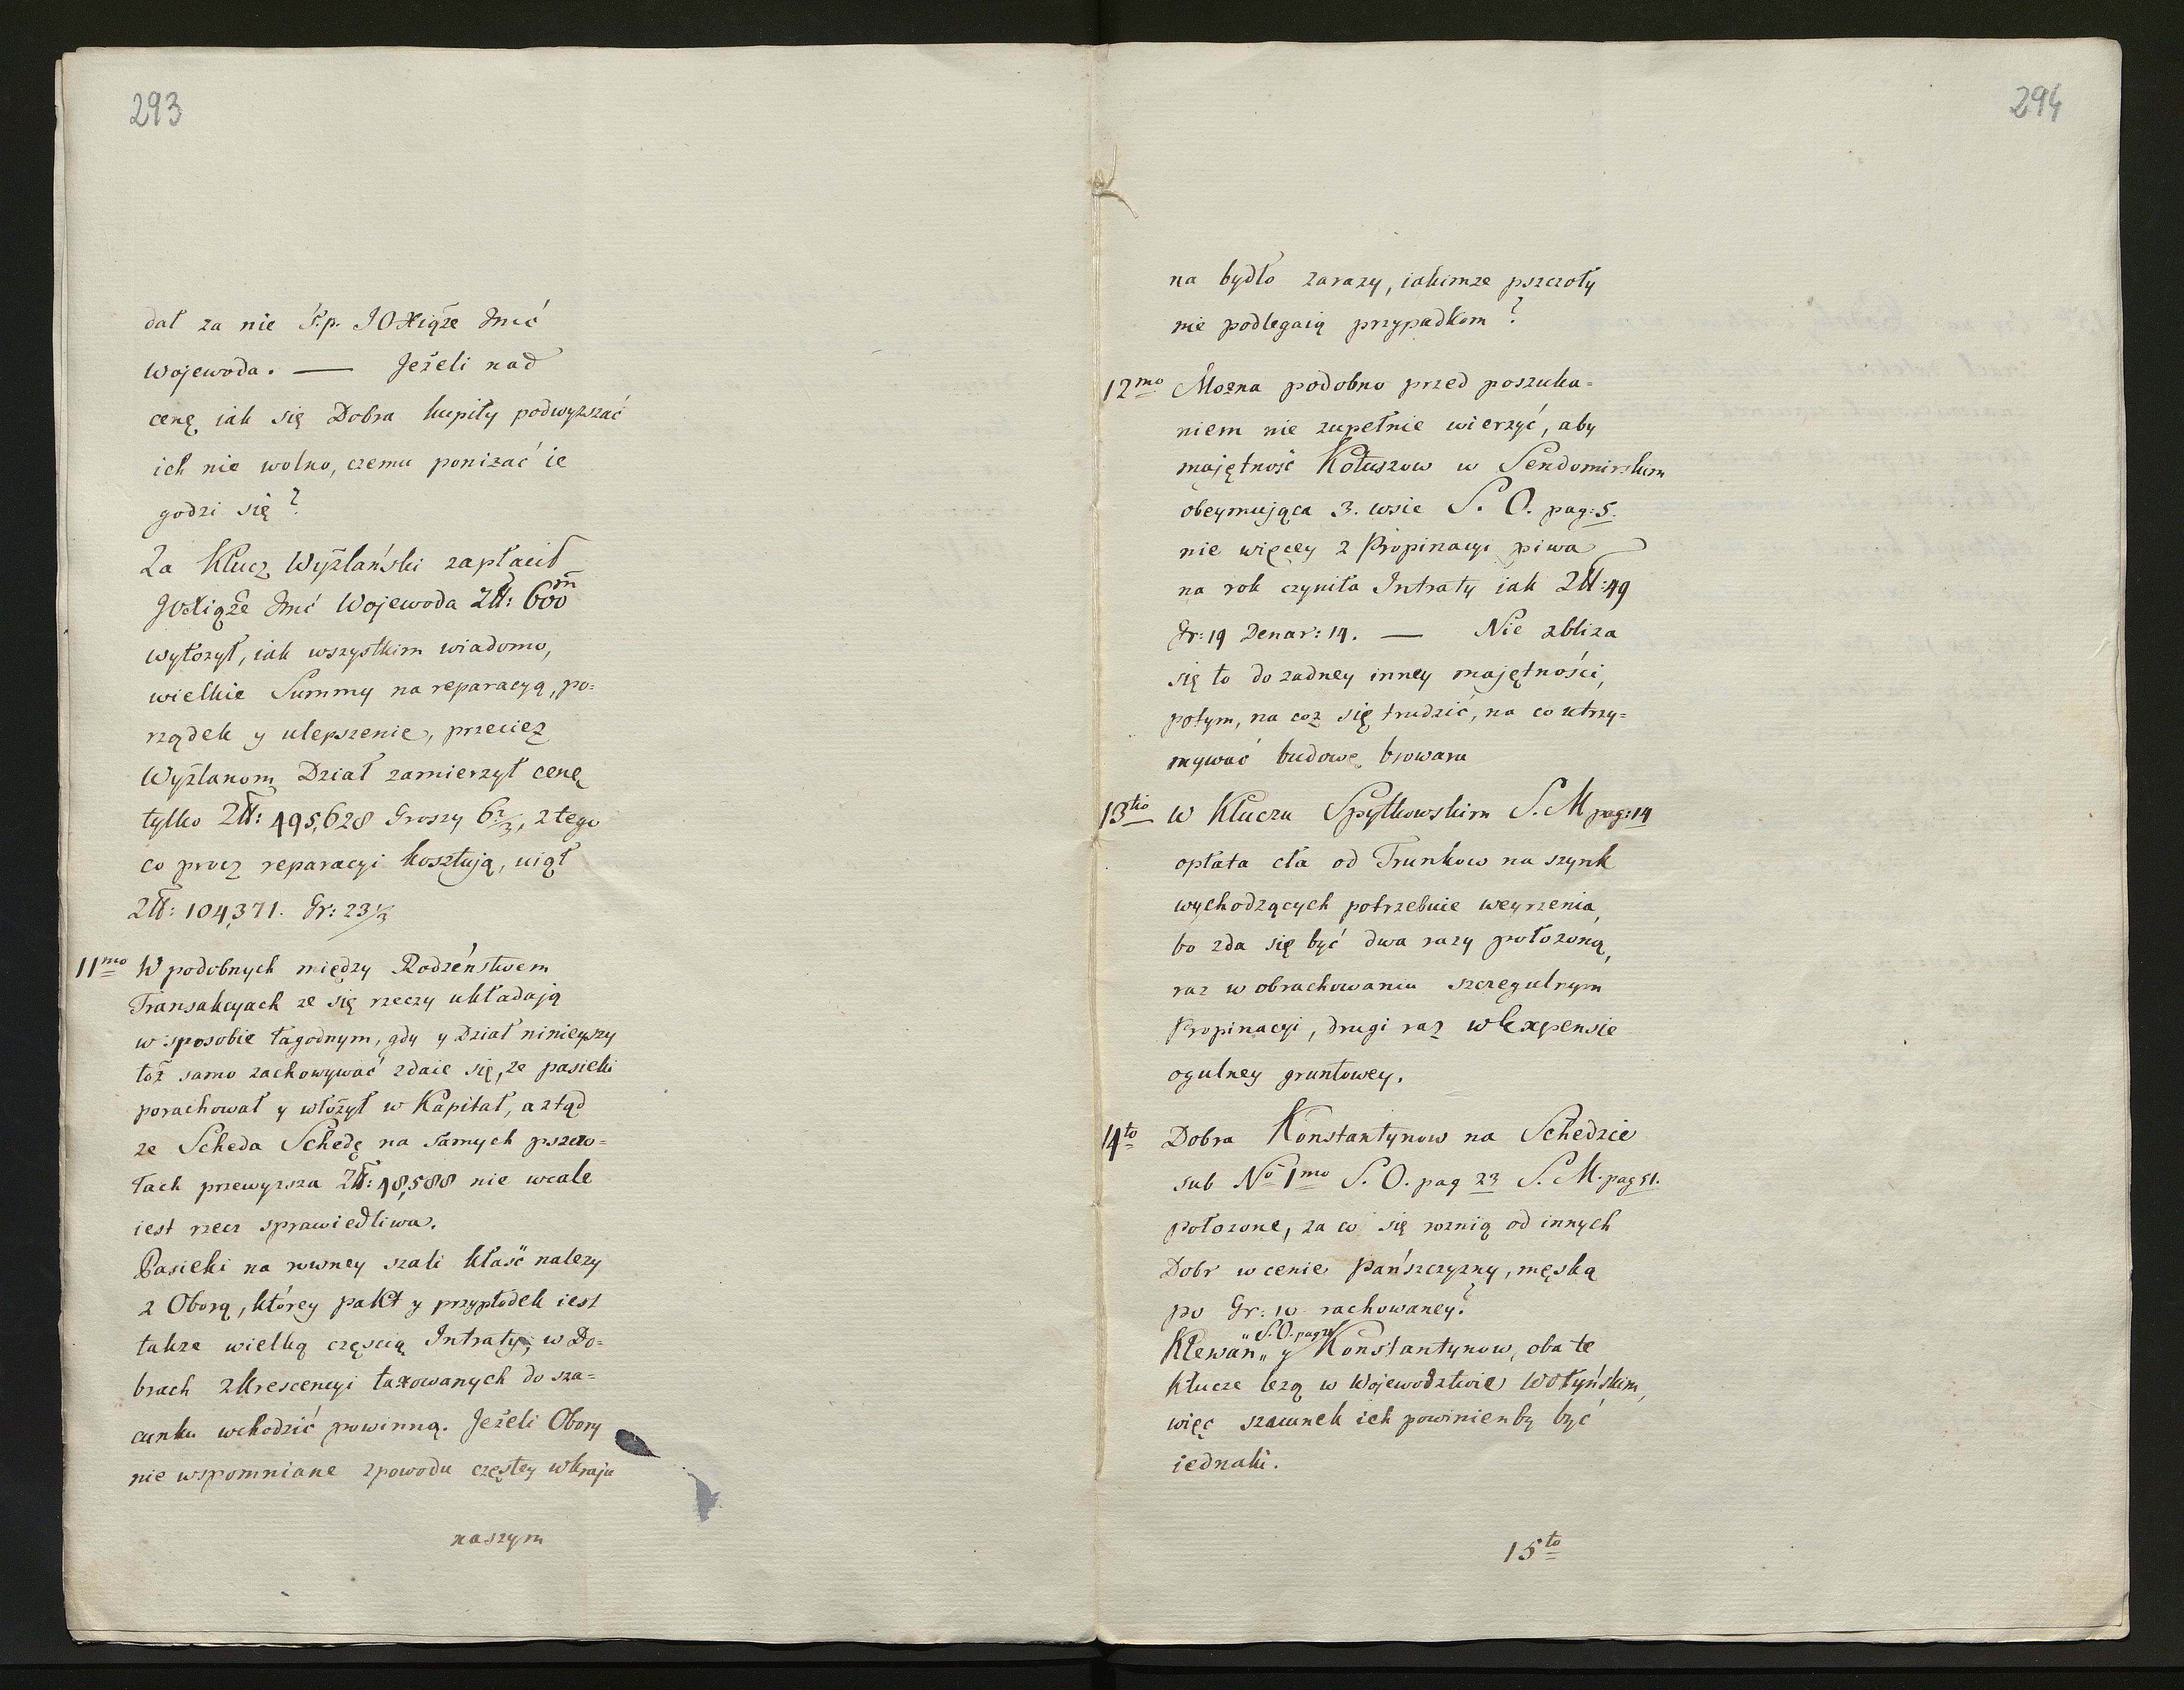 293
dał za nie Ś.p. JOXiąże Jmć
Wojewoda. — Jeżeli nad
cenę iak się Dobra kupiły podwyzszać
ich nie wolno, czemu ponizać ie
godzi się?
Za Klucz Wyżlański zapłacił
JOXiąże Jmć Wojewoda Zł: 600m̅
wyłozył, iak wszystkim wiadomo,
wielkie Summy na reparacyą, po=
rządek y ulepszenie, przeciez
Wyżlanom Dział zamierzył cenę
tylko Zł: 495,628 Groszy 6 2/3, z tego
co procz reparacyi kosztują, uiął
Zł: 104,371. Gr: 23 1/3
11mo W podobnych między Rodzeństwem
Transakcyach ze się rzeczy układają
w sposobie łagodnym, gdy y Dział ninieyszy
toż samo zachowywać zdaie się, ze pasieki
porachował y włożył w Kapitał, a ztąd
ze Scheda Schedę na samych pszczo=
łach przewyzsza Zł: 48,588 nie wcale
iest rzecz sprawiedliwa.
Pasieki na rowney szali kłaść nalezy
z Oborą, którey pakt y przypłodek iest
takze wielką częscią Intraty, w Do=
brach z Krescencyi taxowanych do sza=
cunku wchodzić powinną. Jeżeli Obory
nie wspomniane zpowodu częstey w kraju
naszym
294
na bydło zarazy, iakimze pszczoły
nie podlegaią przypadkom?
12mo Mozna podobno przed poszuka=
niem nie zupełnie wierzyć, aby
majętność Kołuszow w Sendomirskim
obeymująca 3. wsie S. O. pag: 5.
nie więcey z Propinacyi piwa
na rok czyniła Intraty iak Zł: 49
Gr: 19 Denar: 14. — Nie zbliza
się to do zadney inney majętności,
potym, na coz się trudzić, na co utrzy=
mywać budowę browaru
13tio W Kluczu Spytkowskim S. M pag: 14
opłata cła od Trunkow na szynk
wychodzących potrzebuie weyrzenia,
bo zda się być dwa razy połozoną,
raz w obrachowaniu szczegulnym
Propinacyi, drugi raz w Expensie
ogulney gruntowey.
14to Dobra Konstantynow na Schedzie
sub No 1mo S. O. pag 23 S. M. pag 51.
połozone, za co się roznią od innych
Dobr w cenie Pańszczyzny, męską
po Gr: 10 rachowaney?
" S. O. pag
Klewan „ y Konstantynow, oba te
Klucze lezą w Wojewodztwie Wołyńskim,
więc szacunek ich powinienby być
iednaki.
15to